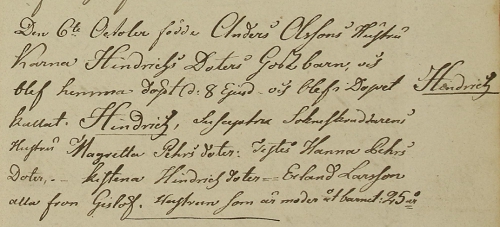 Den 6te October födde Anders Olssons Hustru
Karna Hindrichs Doters Gossebarn, och
blef hemma döpt d: 8 Ejusd och blef i Dopet Hendrich
kallat Hindrich, Susceptrix
Hustru Magretta Pehrs doter: Testes Hanna Pehrs
Doter,. Kistina Hindrich doter = Erland Larsson
alla fron Gislöf. Hustrun som är moder åt barnet: 25 år